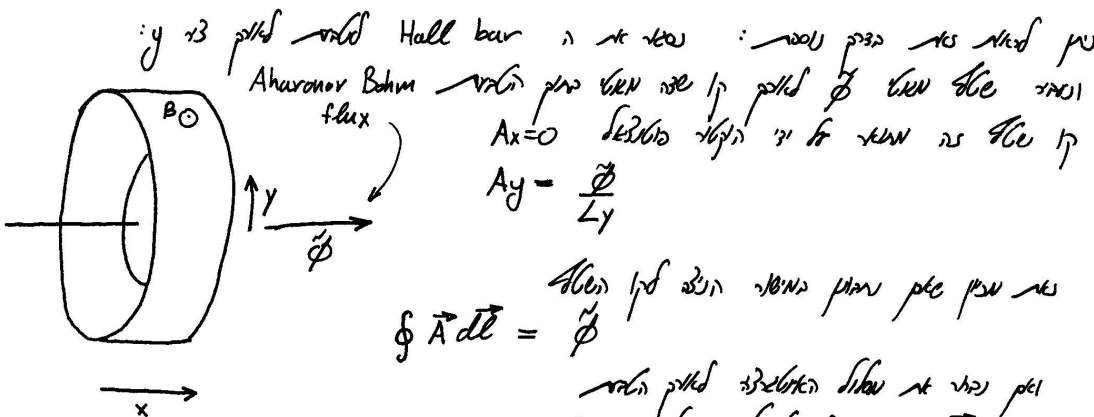 ניתן לראות זאת בדרך נוספת: נסגור את ה Hall bar לטבעת לאורך ציר y:
ונעביר שטף מגנטי Φ̃ לאורך קו שדה מגנטי בתוך הטבעת Aharonov Bohm flux
קו שטף זה מתואר על ידי הוקטור פוטנציאל Ax=0
Ay = Φ̃/Ly
B
y
Φ̃
זאת מכיון שאם נתבונן במישור הניצב לקו השטף
∮ A⃗ dl⃗ = Φ̃
ואם נבחר את מסלול האינטגרציה לאורך הטבעת
x